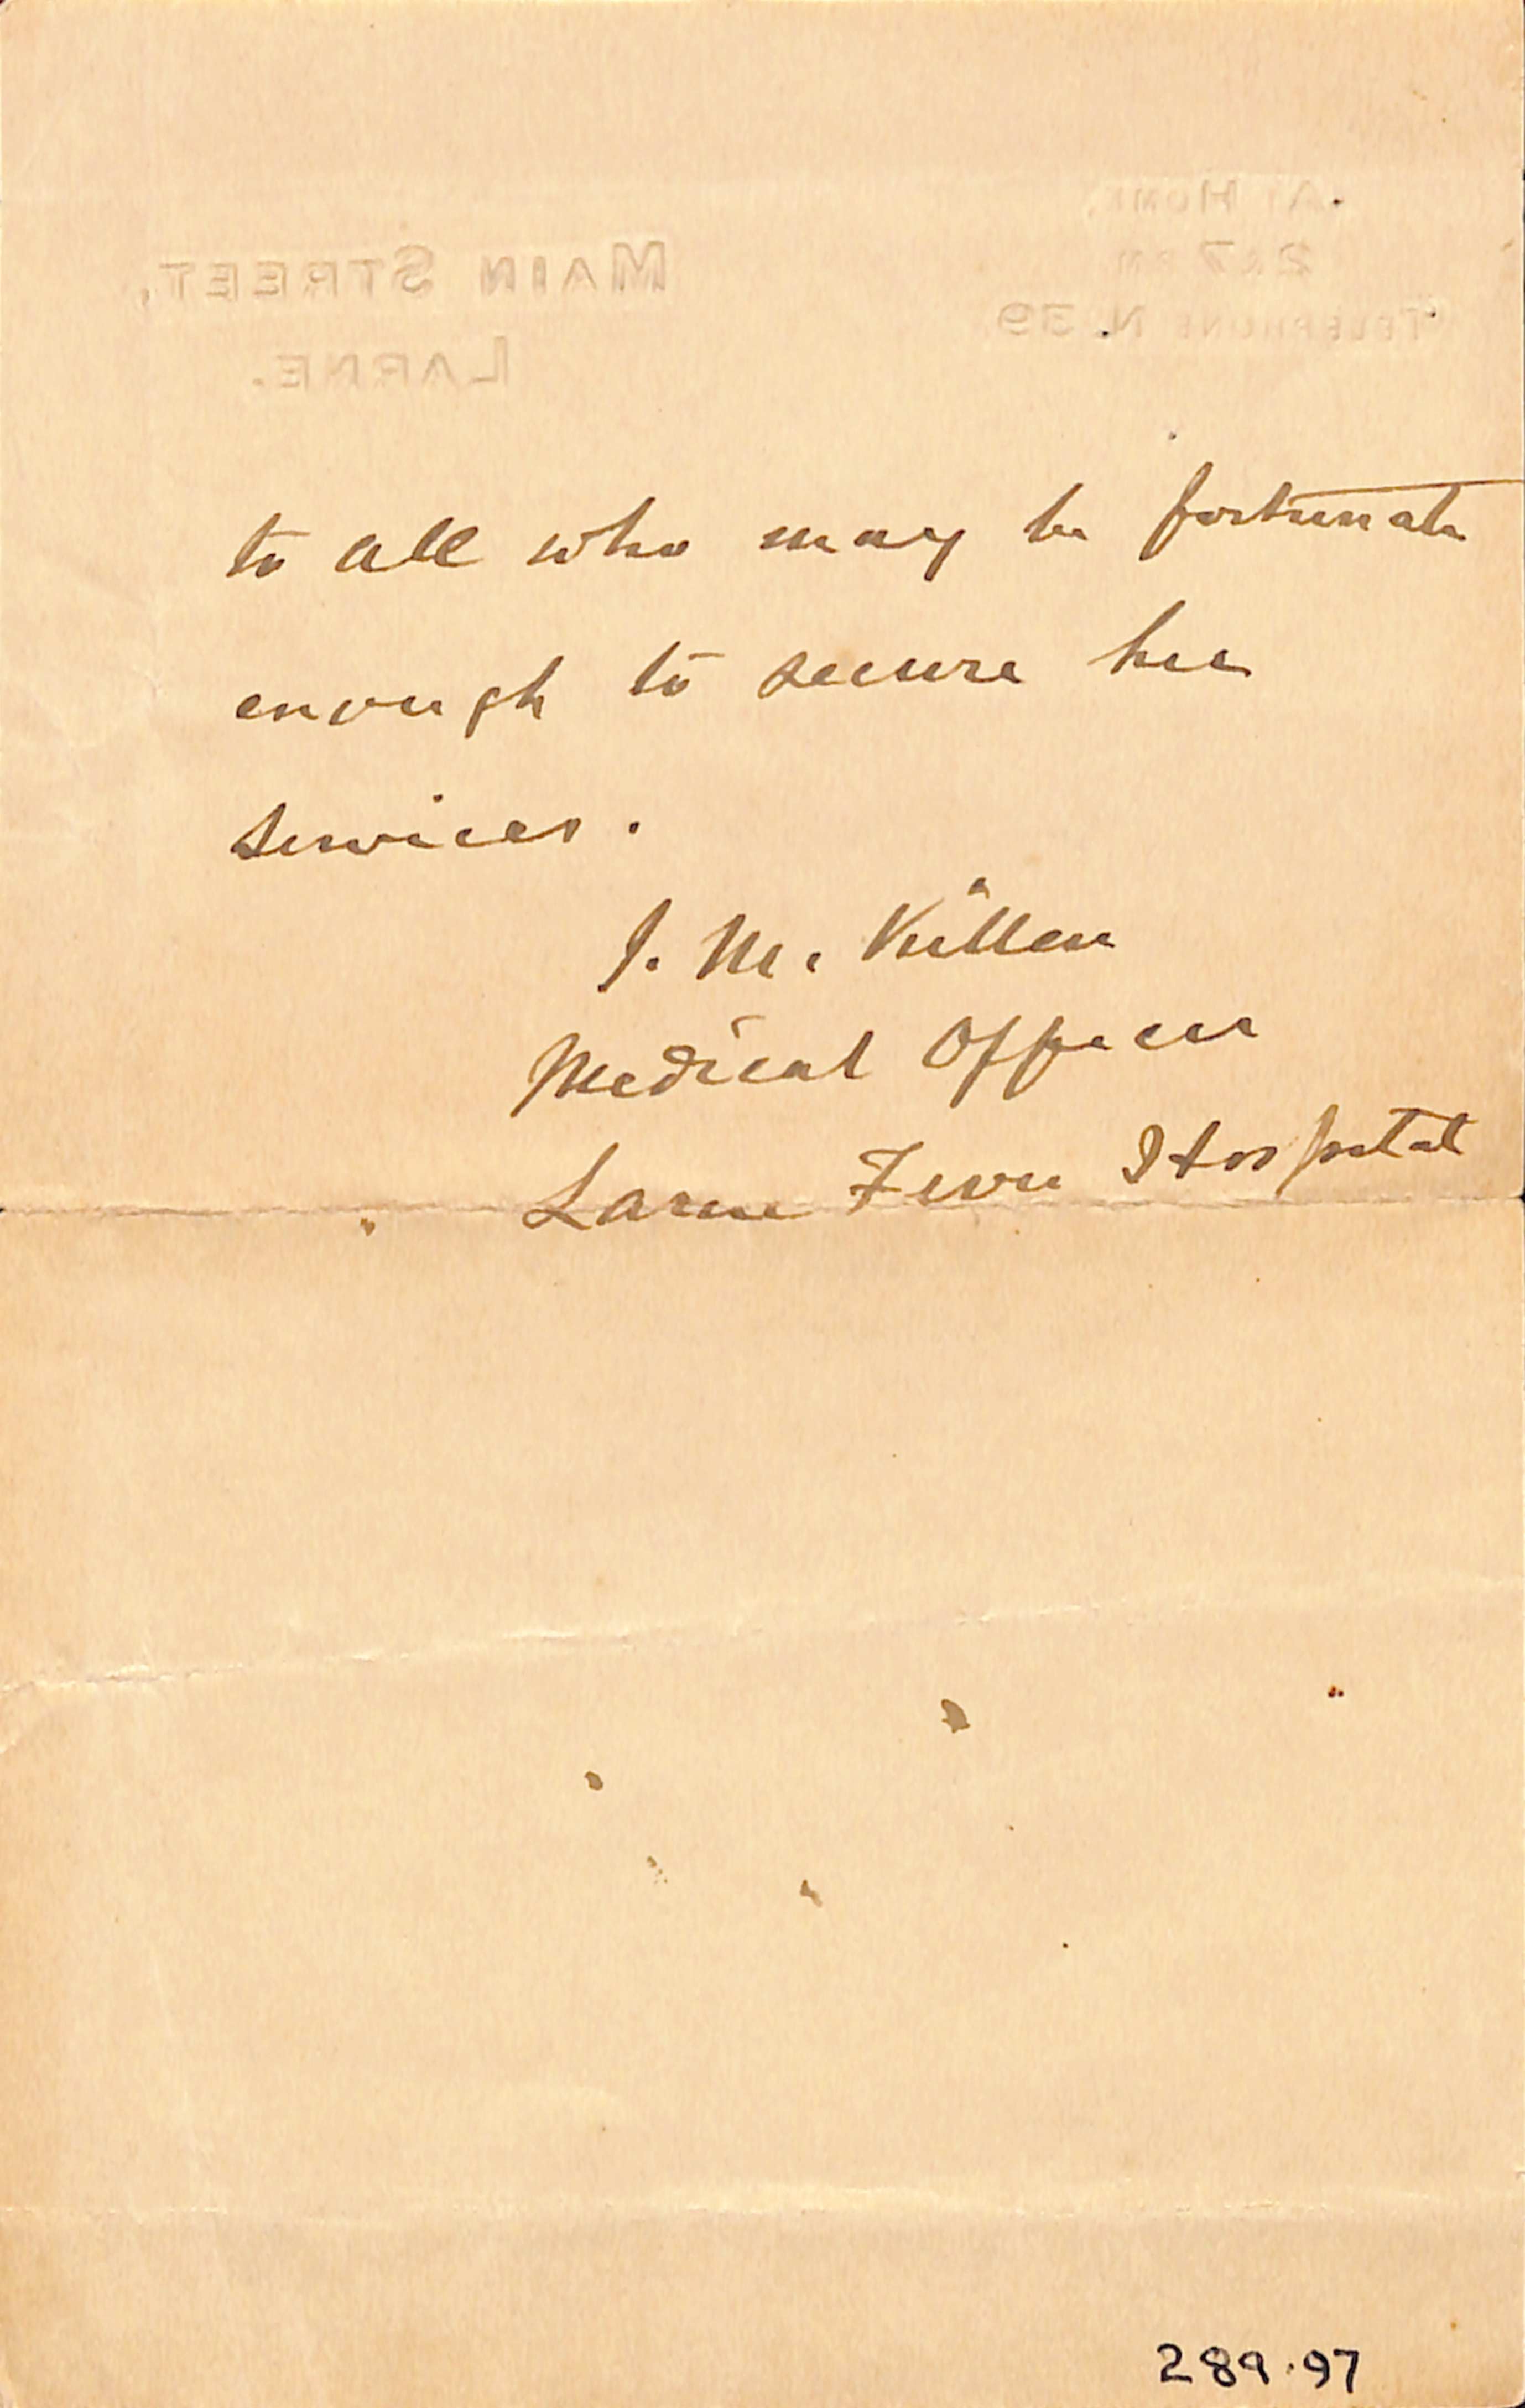 At Home,
2 & 7 P.M.
Telephone No. 39.
Main Street,
Larne.
to all who may be fortunate
enough to secure her
services.
J. M. Killen
Medical Officer
Larne Fever Hospital
289.97